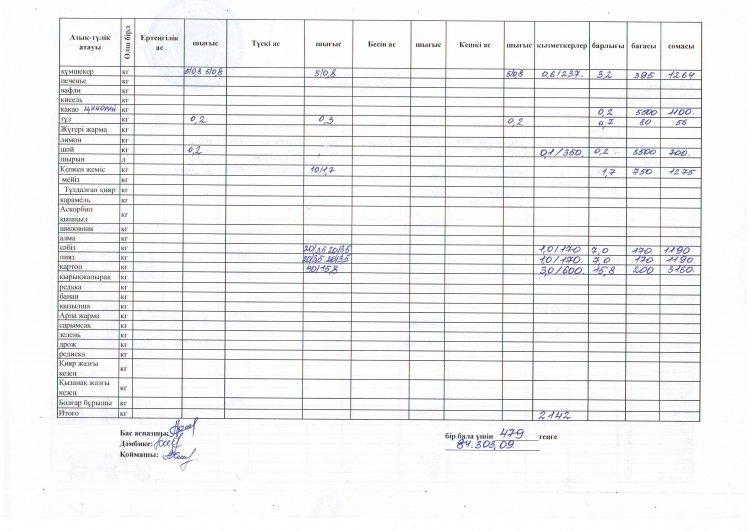 Азық-түлік атауы Өлш бірл Ертеңгілік ас шығыс Түскі ас шығыс Бесін ас шығыс Кешкі ас шығыс қызметкерлер барлығы бағасы сомасы
құмшекер кг 5/0,8 5/0,8 5/0,8 5/0,8 0,6/237. 3,2 395 1264
печенье кг
вафли кг
кисель кг
какао цикорий кг 0,2 5500 1100.
тұз кг 0,2 0,3 0,2 0,7 80 56
Жүгері жарма кг
лимон кг
шай кг 0,2 0,1/350. 0,2 3500 700.
шырын л
Кепкен жеміс кг 10/1,7 1,7 750 1275
мейіз кг
Тұздалған қияр кг
карамель кг
Аскорбин қышқыл кг
шиповник кг
алма кг
сәбіз кг 20/3,5 20/3,5 1,0/170 7,0 170 1190
пияз кг 20/3,5 20/3,5 1,0/170. 7,0 170 1190.
картоп кг 90/15,8 3,0/600. 15,8 200 3160.
қырыққапырақ кг
редька кг
банан кг
қызылша кг
Арпа жарма кг
сарымсақ кг
зелень кг
дрож кг
редиска кг
Қияр жазғы кезең кг
Қызанақ жазғы кезең кг
Болгар бұрышы кг
Итого кг 2142
Бас аспазшы:
Дәмбике:
Қоймашы:
бір бала үшін 479. теңге
84.303,09.